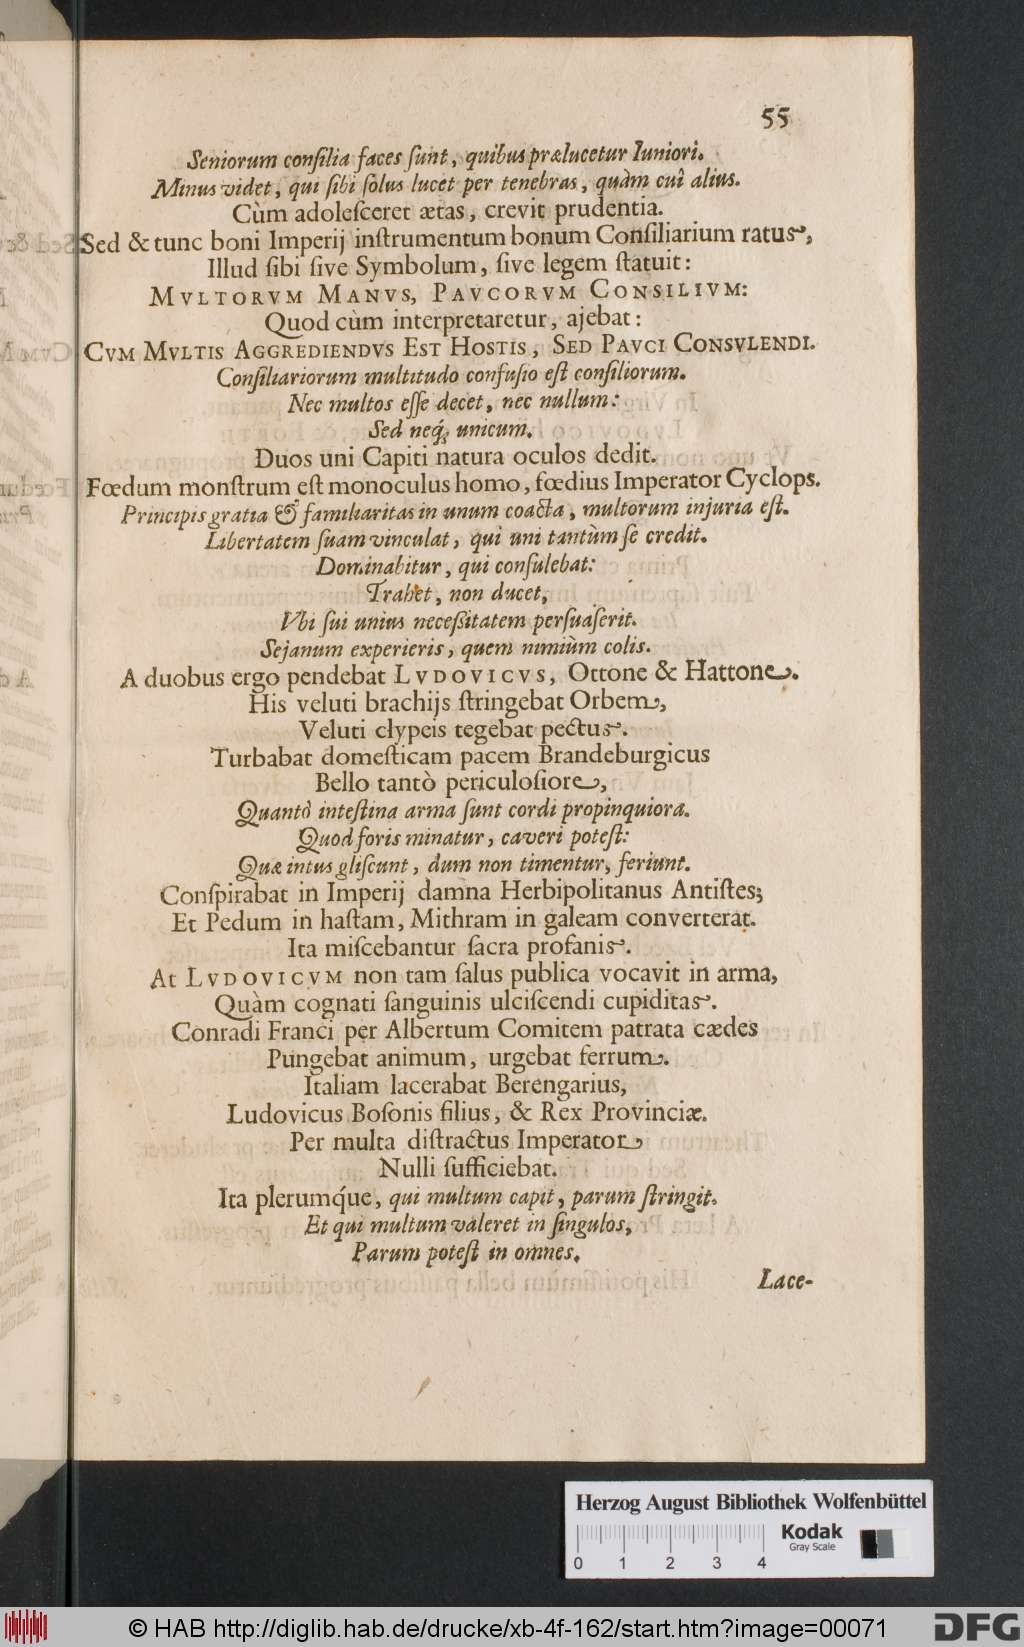 55
Seniorum conſilia faces ſunt, quibus prælucetur Iuniori.
Minus videt, qui ſibi ſolus lucet per tenebras, quàm cui alius.
Cùm adoleſceret ætas, crevit prudentia.
Sed & tunc boni Imperij inſtrumentum bonum Conſiliarium ratus,
Illud ſibi ſive Symbolum, ſive legem ſtatuit:
MVLTORVM MANVS, PAVCORVM CONSILIVM:
Quod cùm interpretaretur, ajebat:
CVM MVLTIS AGGREDIENDVS EST HOSTIS, SED PAVCI CONSVLENDI.
Conſiliariorum multitudo confuſio eſt conſiliorum.
Nec multos eſſe decet, nec nullum:
Sed neq́; unicum.
Duos uni Capiti natura oculos dedit.
Fœdum monſtrum eſt monoculus homo, fœdius Imperator Cyclops.
Principis gratia & familiaritas in unum coacta, multorum injuria eſt.
Libertatem ſuam vinculat, qui uni tantùm ſe credit.
Dominabitur, qui conſulebat:
Trahet, non ducet,
Vbi ſui unius neceſſitatem perſuaſerit.
Sejanum experieris, quem nimiùm colis.
A duobus ergo pendebat LVDOVICVS, Ottone & Hattone.
His veluti brachijs ſtringebat Orbem,
Veluti clypeis tegebat pectus.
Turbabat domeſticam pacem Brandeburgicus
Bello tantò periculoſiore,
Quantò inteſtina arma ſunt cordi propinquiora.
Quod foris minatur, caveri poteſt:
Quæ intus gliſcunt, dum non timentur, feriunt.
Conſpirabat in Imperij damna Herbipolitanus Antiſtes;
Et Pedum in haſtam, Mithram in galeam converterat.
Ita miſcebantur ſacra profanis.
At LVDOVICVM non tam ſalus publica vocavit in arma,
Quàm cognati ſanguinis ulciſcendi cupiditas.
Conradi Franci per Albertum Comitem patrata cædes
Pungebat animum, urgebat ferrum.
Italiam lacerabat Berengarius,
Ludovicus Boſonis filius, & Rex Provinciæ.
Per multa diſtractus Imperator
Nulli ſufficiebat.
Ita plerumq́ue, qui multum capit, parum ſtringit.
Et qui multum valeret in ſingulos,
Parum poteſt in omnes.
Lace-
Herzog August Bibliothek Wolfenbüttel
Kodak
Gray Scale
0 1 2 3 4
© HAB http://diglib.hab.de/drucke/xb-4f-162/start.htm?image=00071
DFG